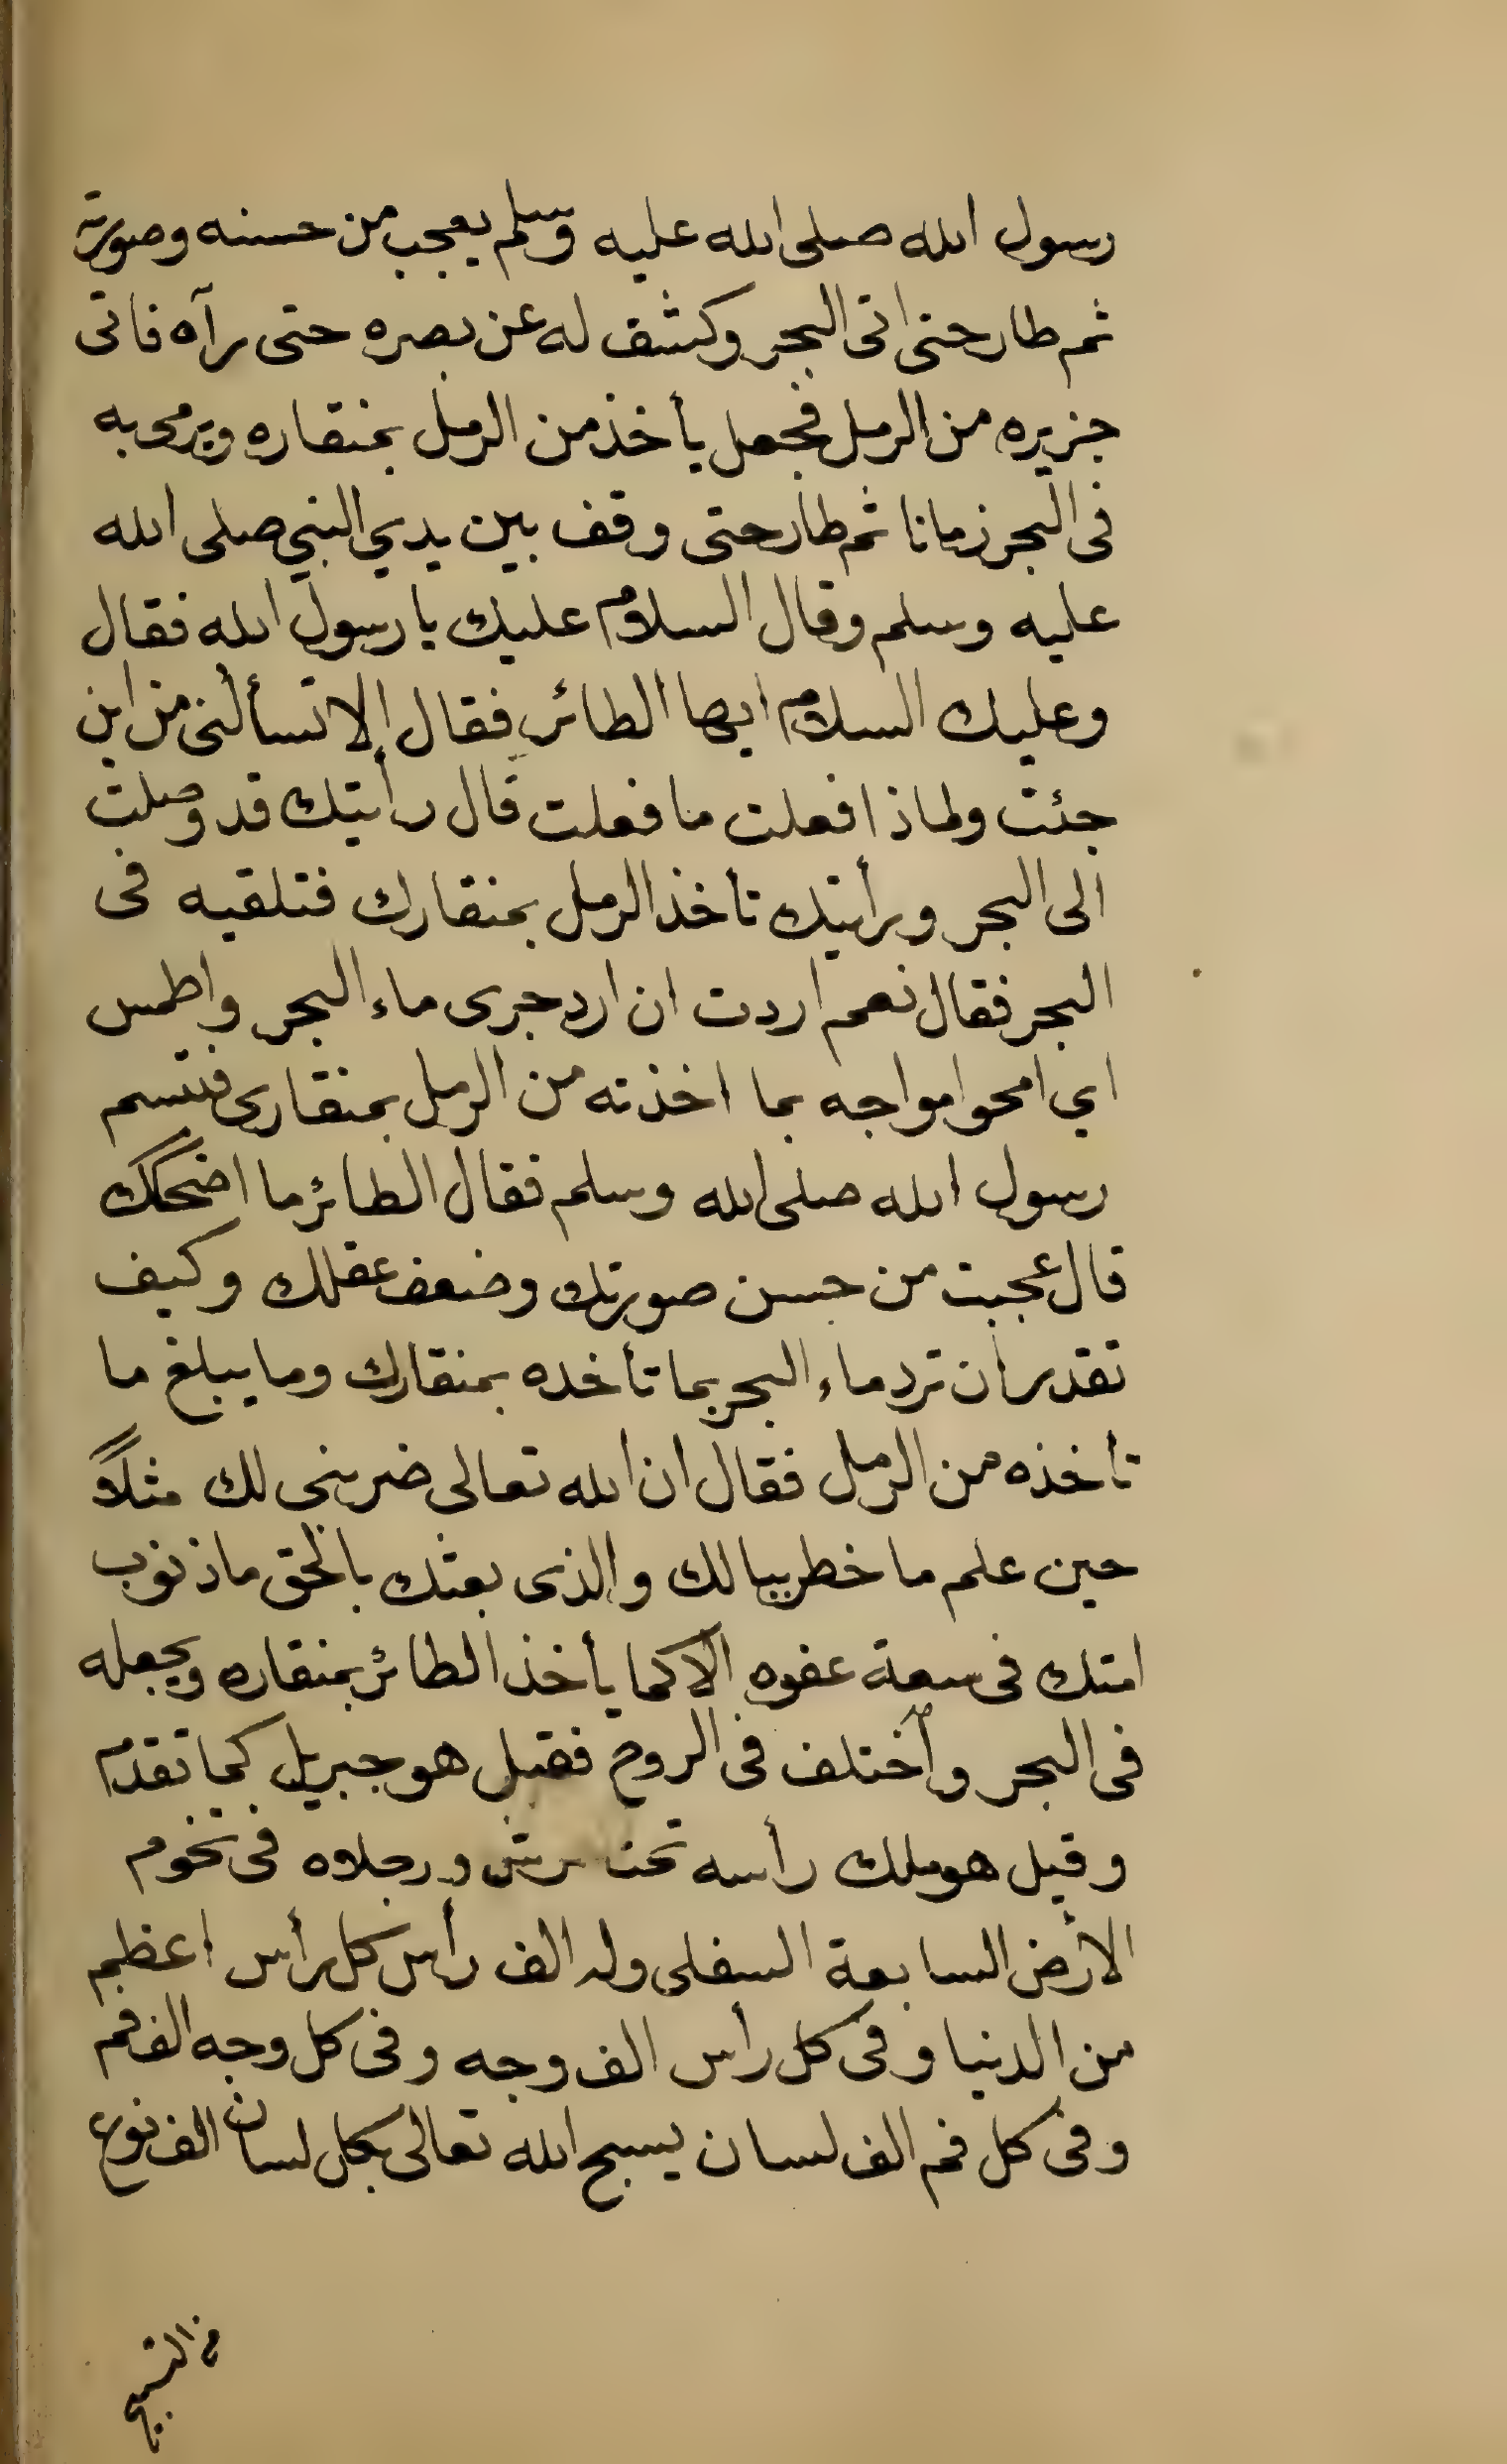 رسول الله صلى الله عليه وسلم يعجب من حسنه وصورته
ثم طار حتى اتى البحر وكشف له عن بصره حتى رآه فاتى
جزيره من الرمل فجعل يأخذ من الرمل بمنقاره ويرمى به
فى البحر زمانا ثم طار حتى وقف بين يدي النبي صلى الله
عليه وسلم وقال السلام عليك يا رسول الله فقال
وعليك السلام ايها الطائر فقال الا تسألنى من اين
جئت ولماذا فعلت ما فعلت قال رأيتك قد وصلت
الى البحر ورأيتك تأخذ الرمل بمنقارك فتلقيه فى
البحر فقال نعم اردت ان ارد جرى ماء البحر واطمس
اي امحو امواجه بما اخذته من الرمل بمنقارى فتبسم
رسول الله صلى الله وسلم فقال الطائر ما اضحكك
قال عجبت من حسن صورتك وضعف عقلك وكيف
تقدر ان ترد ماء البحر بما تأخده بمنقارك وما يبلغ ما
تأخذه من الرمل فقال ان الله تعالى ضربنى لك مثلاً
حين علم ما خطر ببالك والذى بعثك بالحق ما ذنوب
امتك فى سعة عفوه الا كما يأخذ الطائر بمنقاره ويجعله
فى البحر وأختلف فى الروح فقيل هو جبريل كما تقدم
وقيل هو ملك رأسه تحت ورجلاه فى تخوم
الأرض السابعة السفلى وله الف رأس كل رأس اعظم
من الدنيا وفى كل رأس الف وجه وفى كل وجه الف فم
وفى كل فم الف لسان يسبح الله تعالى بكل لسان الف نوع
من التسبيح